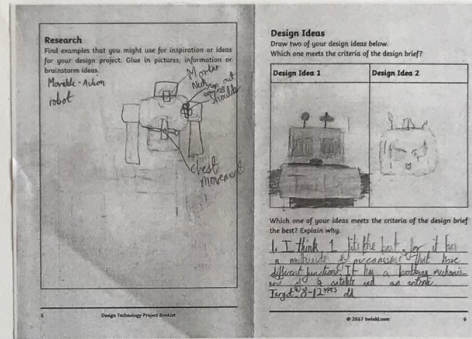 Research
Find examples that you might use for inspiration or ideas
for your design project. Glue in pictures, information or
brainstorm ideas.
Movable - Action
robot
Neck
out
chest
movement
5
Design Technology Project Booklet
Design Ideas
Draw two of your design ideas below.
Which one meets the criteria of the design brief?
Design Idea 1
Design Idea 2
Which one of your ideas meets the criteria of the design brief
the best? Explain why.
1. I think 1 fits the best, for it has
a of mechanisms that have
different functions. It has a mechanism
and a
Target: 8-12 yrs old
© 2017 twinkl.com
6